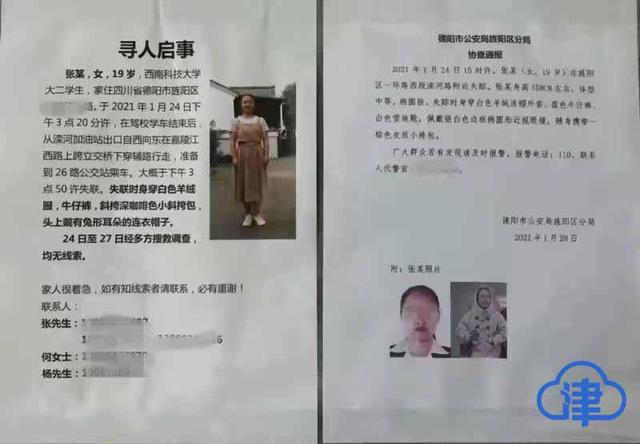 寻人启事
张某，女，19岁，西南科技大学
大二学生，家住四川省德阳市旌阳区
路，于2021年1月24日下
午3点20分许，在驾校学车结束后，
从滦河加油站出口自西向东在嘉陵江
西路上跨立交桥下穿辅路行走，准备
到26路公交站乘车。大概于下午3
点50许失联。失联时身穿白色羊绒
服，牛仔裤，斜挎深咖啡色小斜挎包，
头上戴有兔形耳朵的连衣帽子。
24日至27日经多方搜救调查，
均无线索。
家人很着急，如有知线索者请联系，必有重谢！
联系人：
张先生：
何女士：
杨先生：
德阳市公安局旌阳区分局
协查通报
2021年1月24日15时许，张某（女，19岁）在旌阳
区一环路西段滦河路附近失踪。张某身高158CM左右，体型
中等，椭圆脸。失踪时身穿白色羊绒连帽外套，蓝色牛仔裤，
白色雪地靴，佩戴银白色边框椭圆形近视眼镜，随身携带一
棕色皮质小挎包。
广大群众若有发现请及时报警，报警电话：110，联系
人代警官
德阳市公安局旌阳区分局
2021年1月28日
附：张某照片
津